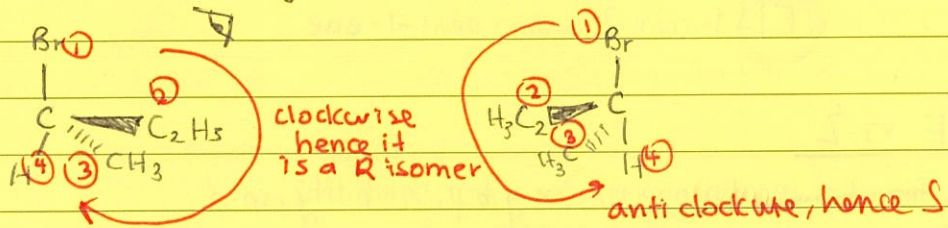 Br ①
C
②
C2H5
H ④
③ CH3
clockwise
hence it
is a R isomer
①
Br
②
H3C2
C
③
H3C
H ④
anti clockuse, hence S